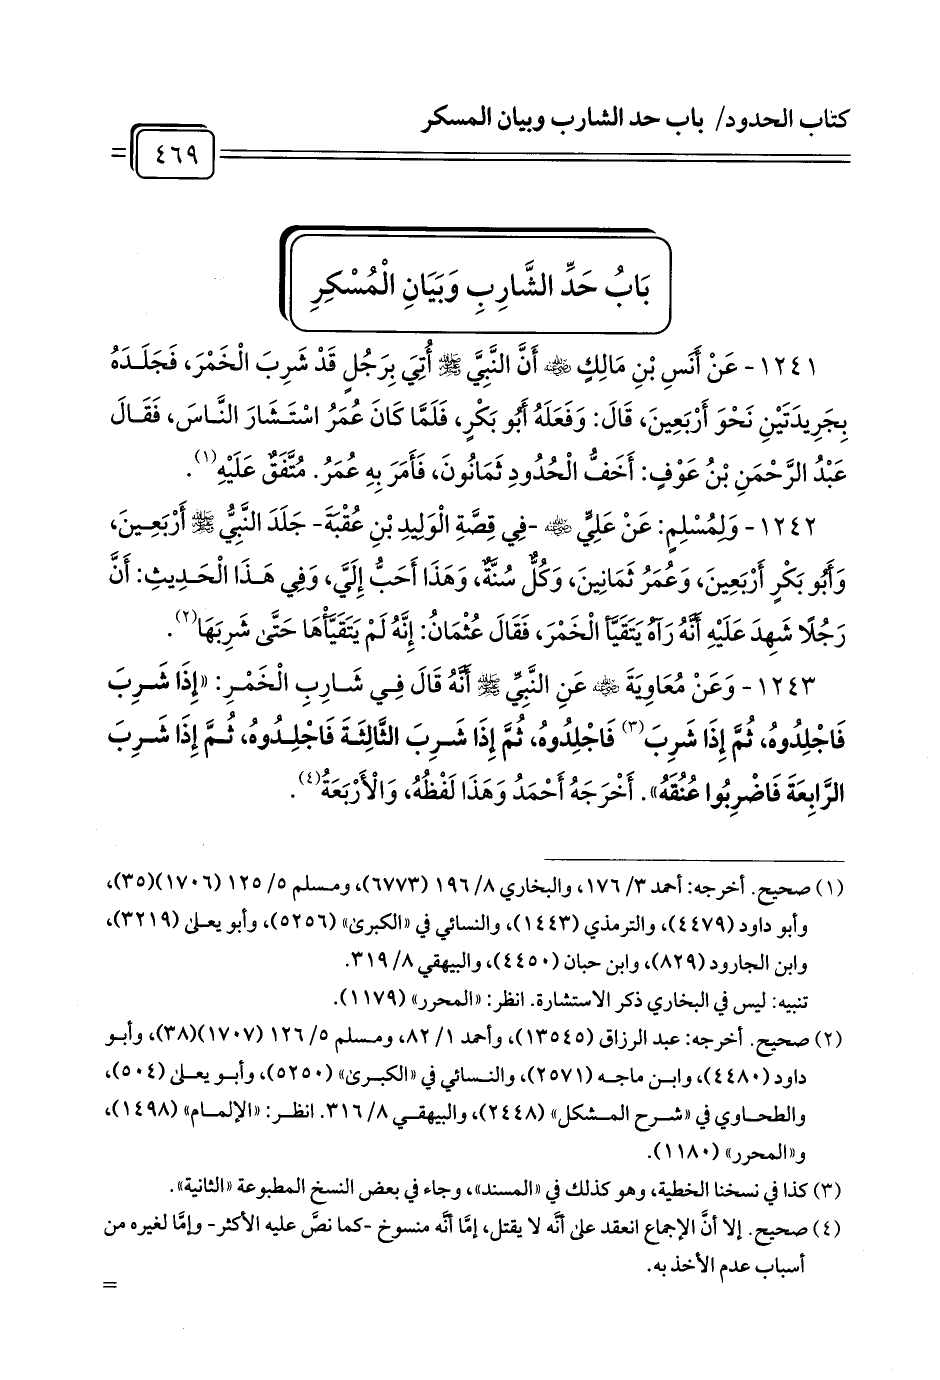 كتاب الحدود/ باب حد الشارب وبيان المسكر
٤٦٩ =
بَابُ حَدِّ الشَّارِبِ وَبَيَانِ الْمُسْكِرِ
١٢٤١- عَنْ أَنَسِ بْنِ مَالِكٍ ﵁ أَنَّ النَّبِيَّ ﷺ أُتِيَ بِرَجُلٍ قَدْ شَرِبَ الْخَمْرَ، فَجَلَدَهُ
بِجَرِيدَتَيْنِ نَحْوَ أَرْبَعِينَ، قَالَ: وَفَعَلَهُ أَبُو بَكْرٍ، فَلَمَّا كَانَ عُمَرُ اسْتَشَارَ النَّاسَ، فَقَالَ
عَبْدُ الرَّحْمَنِ بْنُ عَوْفٍ: أَخَفُّ الْحُدُودِ ثَمَانُونَ، فَأَمَرَ بِهِ عُمَرُ. مُتَّفَقٌ عَلَيْهِ(١).
١٢٤٢- وَلِمُسْلِمٍ: عَنْ عَلِيٍّ ﵁ -فِي قِصَّةِ الْوَلِيدِ بْنِ عُقْبَةَ- جَلَدَ النَّبِيُّ ﷺ أَرْبَعِينَ،
وَأَبُو بَكْرٍ أَرْبَعِينَ، وَعُمَرُ ثَمَانِينَ، وَكُلٌّ سُنَّةٌ، وَهَذَا أَحَبُّ إِلَيَّ، وَفِي هَذَا الْحَدِيثِ: أَنَّ
رَجُلًا شَهِدَ عَلَيْهِ أَنَّهُ رَآهُ يَتَقَيَّأُ الْخَمْرَ، فَقَالَ عُثْمَانُ: إِنَّهُ لَمْ يَتَقَيَّأْهَا حَتَّى شَرِبَهَا(٢).
١٢٤٣- وَعَنْ مُعَاوِيَةَ ﵁ عَنِ النَّبِيِّ ﷺ أَنَّهُ قَالَ فِي شَارِبِ الْخَمْرِ: «إِذَا شَرِبَ
فَاجْلِدُوهُ، ثُمَّ إِذَا شَرِبَ(٣) فَاجْلِدُوهُ، ثُمَّ إِذَا شَرِبَ الثَّالِثَةَ فَاجْلِدُوهُ، ثُمَّ إِذَا شَرِبَ
الرَّابِعَةَ فَاضْرِبُوا عُنُقَهُ». أَخْرَجَهُ أَحْمَدُ وَهَذَا لَفْظُهُ، وَالْأَرْبَعَةُ(٤).
(١) صحيح. أخرجه: أحمد ٣/ ١٧٦، والبخاري ٨/ ١٩٦ (٦٧٧٣)، ومسلم ٥/ ١٢٥ (١٧٠٦)(٣٥)،
وأبو داود (٤٤٧٩)، والترمذي (١٤٤٣)، والنسائي في «الكبرى» (٥٢٥٦)، وأبو يعلى (٣٢١٩)،
وابن الجارود (٨٢٩)، وابن حبان (٤٤٥٠)، والبيهقي ٨/ ٣١٩.
تنبيه: ليس في البخاري ذكر الاستشارة. انظر: «المحرر» (١١٧٩).
(٢) صحيح. أخرجه: عبد الرزاق (١٣٥٤٥)، وأحمد ١/ ٨٢، ومسلم ٥/ ١٢٦ (١٧٠٧)(٣٨)، وأبو
داود (٤٤٨٠)، وابن ماجه (٢٥٧١)، والنسائي في «الكبرى» (٥٢٥٠)، وأبو يعلى (٥٠٤)،
والطحاوي في «شرح المشكل» (٢٤٤٨)، والبيهقي ٨/ ٣١٦. انظر: «الإلمام» (١٤٩٨)،
و«المحرر» (١١٨٠).
(٣) كذا في نسخنا الخطية، وهو كذلك في «المسند»، وجاء في بعض النسخ المطبوعة «الثانية».
(٤) صحيح. إلا أنَّ الإجماع انعقد على أنَّه لا يقتل، إمَّا أنَّه منسوخ -كما نصَّ عليه الأكثر- وإمَّا لغيره من
أسباب عدم الأخذ به.
=